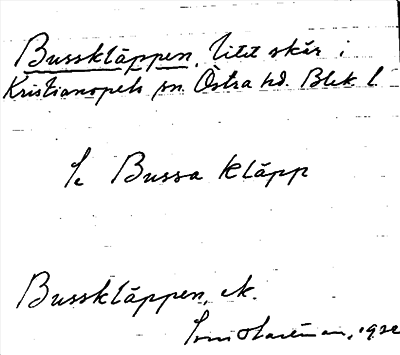 Bussktäppen, litet skär i
Kristianopels sn. Östra hd. Blek l.
Se Bussa kläpp
Bussktäppen, ek.